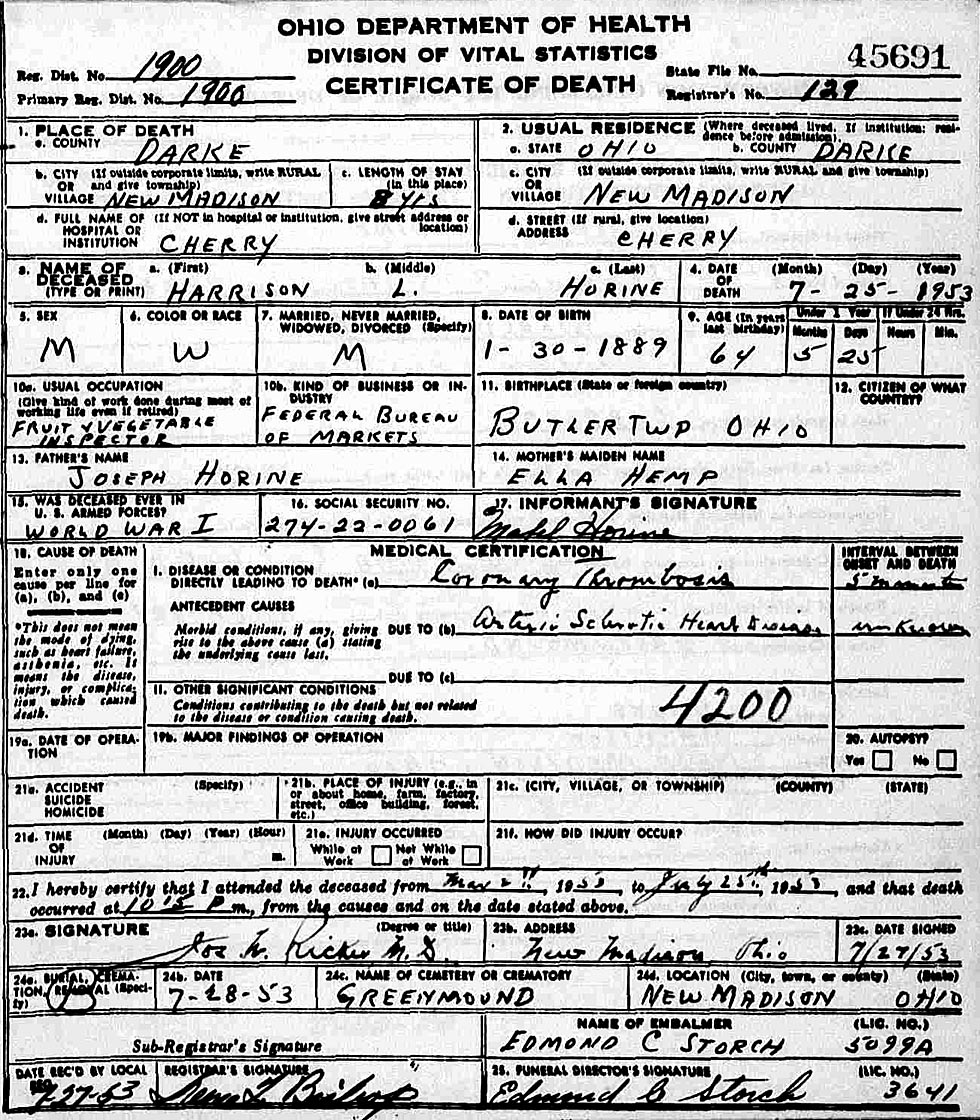 OHIO DEPARTMENT OF HEALTH
DIVISION OF VITAL STATISTICS
CERTIFICATE OF DEATH
Reg. Dist. No. 1900
Primary Reg. Dist. No. 1900
State File No. 45691
Registrar's No. 129
1. PLACE OF DEATH
a. COUNTY DARKE
2. USUAL RESIDENCE (Where deceased lived. If institution: residence before admission).
a. STATE OHIO b. COUNTY DARKE
b. CITY (If outside corporate limits, write RURAL
OR and give township)
VILLAGE NEW MADISON
c. LENGTH OF STAY
(in this place)
8 YRS
c. CITY (If outside corporate limits, write RURAL and give township)
OR
VILLAGE NEW MADISON
d. FULL NAME OF (If NOT in hospital or institution, give street address or
HOSPITAL OR location)
INSTITUTION CHERRY
d. STREET (If rural, give location)
ADDRESS CHERRY
3. NAME OF DECEASED
(TYPE OR PRINT)
a. (First) b. (Middle) c. (Last)
HARRISON L. HORINE
4. DATE OF DEATH (Month) (Day) (Year)
7- 25- 1953
5. SEX
M
6. COLOR OR RACE
W
7. MARRIED, NEVER MARRIED,
WIDOWED, DIVORCED (Specify)
M
8. DATE OF BIRTH
1- 30-1889
9. AGE (In years
last birthday)
64
Under 1 Year If Under 24 Hrs.
Months Days Hours Min.
5 25
10a. USUAL OCCUPATION
(Give kind of work done during most of
working life even if retired)
FRUIT & VEGETABLE
INSPECTOR
10b. KIND OF BUSINESS OR IN-
DUSTRY
FEDERAL BUREAU
OF MARKETS
11. BIRTHPLACE (State or foreign country)
BUTLER TWP OHIO
12. CITIZEN OF WHAT
COUNTRY?
13. FATHER'S NAME
JOSEPH HORINE
14. MOTHER'S MAIDEN NAME
ELLA HEMP
15. WAS DECEASED EVER IN
U. S. ARMED FORCES?
WORLD WAR I
16. SOCIAL SECURITY NO.
274-22-0061
17. INFORMANT'S SIGNATURE
Mabel Horine
18. CAUSE OF DEATH
Enter only one
cause per line for
(a), (b), and (c)
*This does not mean
the mode of dying,
such as heart failure,
asthenia, etc. It
means the disease,
injury, or complica-
tion which caused
death.
MEDICAL CERTIFICATION
I. DISEASE OR CONDITION
DIRECTLY LEADING TO DEATH* (a) Coronary Thrombosis
ANTECEDENT CAUSES
Morbid conditions, if any, giving
rise to the above cause (a) stating
the underlying cause last.
DUE TO (b) Arterio Sclerotic Heart Disease
DUE TO (c)
INTERVAL BETWEEN
ONSET AND DEATH
5 minutes
unknown
II. OTHER SIGNIFICANT CONDITIONS
Conditions contributing to the death but not related
to the disease or condition causing death.
4200
19a. DATE OF OPERA-
TION
19b. MAJOR FINDINGS OF OPERATION
20. AUTOPSY?
Yes No
21a. ACCIDENT (Specify)
SUICIDE
HOMICIDE
21b. PLACE OF INJURY (e.g., in
or about home, farm, factory,
street, office building, forest,
etc.)
21c. (CITY, VILLAGE, OR TOWNSHIP) (COUNTY) (STATE)
21d. TIME (Month) (Day) (Year) (Hour)
OF
INJURY m.
21e. INJURY OCCURRED
While at Work Not While at Work
21f. HOW DID INJURY OCCUR?
22. I hereby certify that I attended the deceased from 1953, to July 25th, 1953, and that death
occurred at 10 15 P m., from the causes and on the date stated above.
23a. SIGNATURE (Degree or title)
M.D.
23b. ADDRESS
New Madison, Ohio
23c. DATE SIGNED
7/27/53
24a. BURIAL, CREMA-
TION, REMOVAL (Speci-
fy)
24b. DATE
7-28-53
24c. NAME OF CEMETERY OR CREMATORY
GREENMOUND
24d. LOCATION (City, town, or county) (State)
NEW MADISON OHIO
Sub-Registrar's Signature
NAME OF EMBALMER (LIC. NO.)
EDMOND C STORCH 5099A
DATE REC'D BY LOCAL
REG.
7-27-53
REGISTRAR'S SIGNATURE
Bishop
25. FUNERAL DIRECTOR'S SIGNATURE (LIC. NO.)
Edmund C Storch 3641